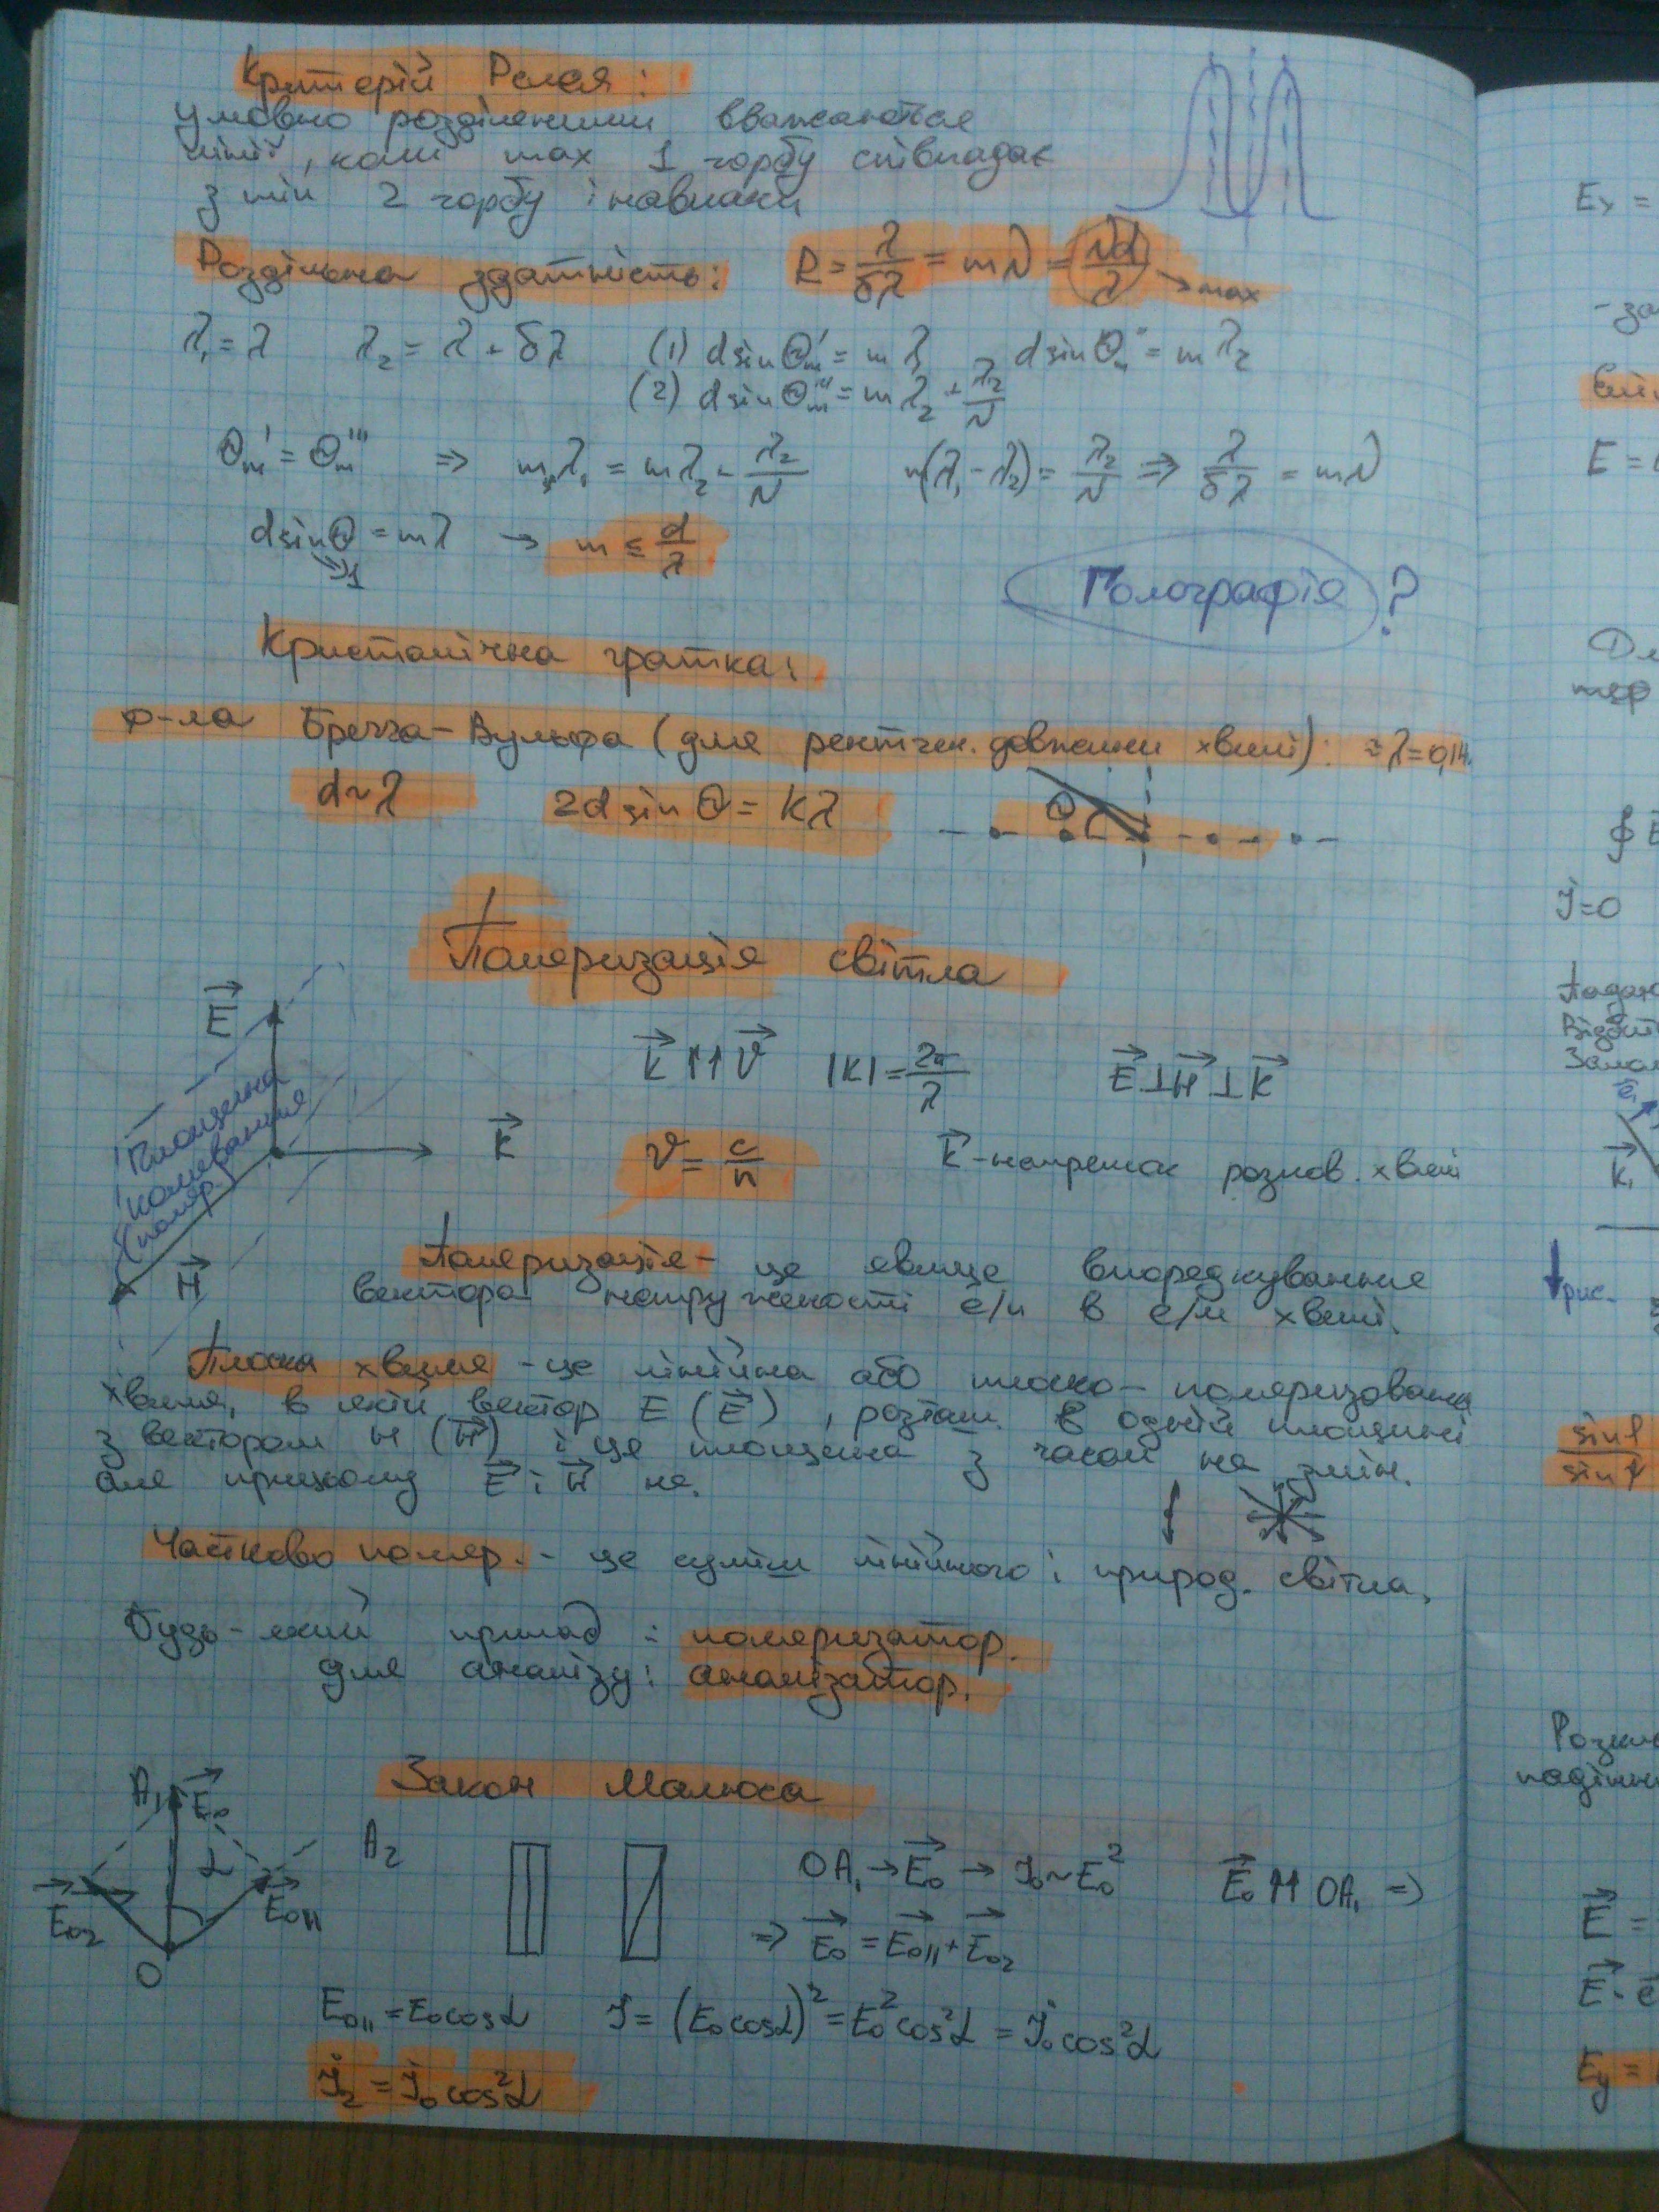 Критерій Релея:
Умовно розділеними вважаються
лінії, коли max 1 горбу співпадає
з min 2 горбу і навпаки
Роздільна здатність: R = λ/δλ = mN = Nd/λ → max
λ₁ = λ λ₂ = λ + δλ (1) d sin Θm' = mλ₁ d sin Θm'' = mλ₂
(2) d sin Θm''' = mλ₂ + λ₂/N
Θm' = Θm''' => mλ₁ = mλ₂ - λ₂/N m(λ₁ - λ₂) = λ₂/N => λ/δλ = mN
d sin Θ = mλ → m ≤ d/λ
=>1
Голографія ?
Кристалічна гратка:
ф-ла Брегга-Вульфа (для рентген. довжини хвилі): ≈ λ = 0,1н.
d ~ λ 2d sin Θ = kλ Θ
Поляризація світла
E
K ↑↑ V |K| = 2π/λ E ⊥ H ⊥ K
Площина
коливання
(поляр.)
K
V = c/n K - напрямок розпов. хвилі
H
Поляризація - це явище впорядкування
вектора напруженості е/п в е/м хвилі.
Плоска хвиля - це лінійна або плоско-поляризована
хвиля, в якій вектор E (E), розташ. в одній площині
з вектором H (H) і ця площина з часом не змін.
але при цьому E і H не.
Частково поляр. - це суміш лінійного і природ. світла.
Будь-який прилад: поляризатор.
для аналізу: аналізатор.
Закон Малюса
A₁ E₀
α A₂
E₀₂ E₀||
O
OA₁ → E₀ → J₀ ~ E₀² E₀ ↑↑ OA₁ =>
=> E₀ = E₀|| + E₀₂
E₀|| = E₀ cos α J = (E₀ cos α)² = E₀² cos² α = J₀ cos² α
J₂ = J₀ cos² α
Eₓ =
- за
E =
∮ E
J = 0
Падаю
Відби
Залом
e₁
K₁
рис.
sin φ
sin ψ
падінн
E =
E · e
Ey =